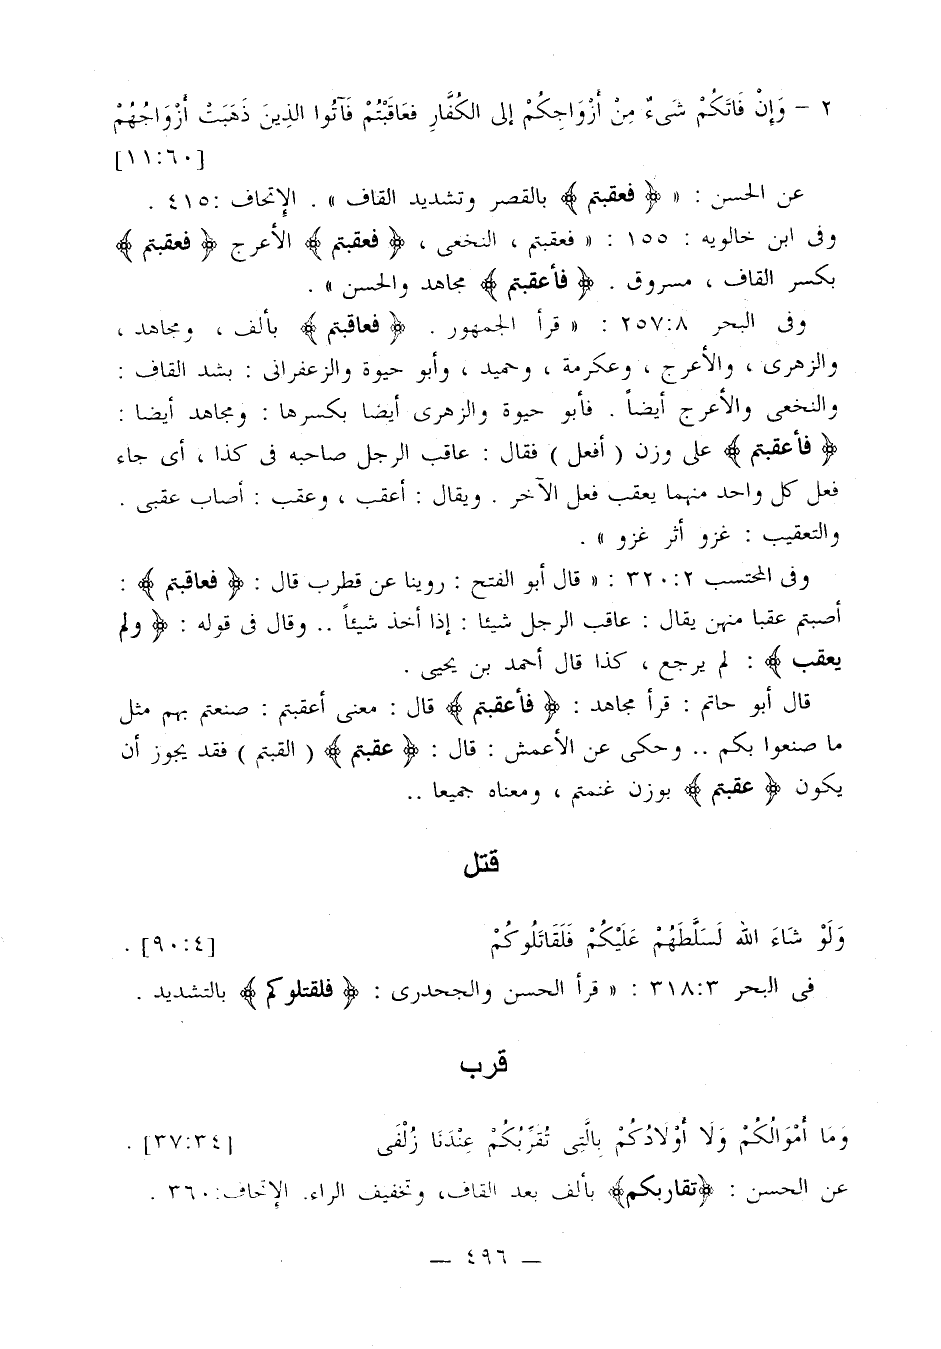 ٢ – وَإِنْ فَاتَكُمْ شَىءٌ مِنْ أَزْوَاجِكُمْ إلى الكُفَّارِ فعَاقَبْتُمْ فَآتُوا الذِينَ ذَهَبَتْ أَزْوَاجُهُمْ
[١١:٦٠]
عن الحسن : « ﴿ فعقبتم ﴾ بالقصر وتشديد القاف » . الإتحاف :٤١٥ .
وفى ابن خالويه : ١٥٥ : « فعقبتم ، النخعى ، ﴿ فعقبتم ﴾ الأعرج ﴿ فعقبتم ﴾
بكسر القاف ، مسروق . ﴿ فأعقبتم ﴾ مجاهد والحسن » .
وفى البحر ٢٥٧:٨ : « قرأ الجمهور . ﴿ فعاقبتم ﴾ بألف ، ومجاهد ،
والزهرى ، والأعرج ، وعكرمة ، وحميد ، وأبو حيوة والزعفرانى : بشد القاف :
والنخعى والأعرج أيضاً . فأبو حيوة والزهرى أيضا بكسرها : ومجاهد أيضا :
﴿ فأعقبتم ﴾ على وزن ( أفعل ) فقال : عاقب الرجل صاحبه فى كذا ، أى جاء
فعل كل واحد منهما يعقب فعل الآخر . ويقال : أعقب ، وعقب : أصاب عقبى .
والتعقيب : غزو أثر غزو » .
وفى المحتسب ٣٢٠:٢ : « قال أبو الفتح : روينا عن قطرب قال : ﴿ فعاقبتم ﴾ :
أصبتم عقبا منهن يقال : عاقب الرجل شيئا : إذا أخذ شيئاً .. وقال فى قوله : ﴿ ولم
يعقب ﴾ : لم يرجع ، كذا قال أحمد بن يحيى .
قال أبو حاتم : قرأ مجاهد : ﴿ فأعقبتم ﴾ قال : معنى أعقبتم : صنعتم بهم مثل
ما صنعوا بكم .. وحكى عن الأعمش : قال : ﴿ عقبتم ﴾ ( القبتم ) فقد يجوز أن
يكون ﴿ عقبتم ﴾ بوزن غنمتم ، ومعناه جميعا ..
قتل
وَلَوْ شَاءَ اللهُ لَسَلَّطَهُمْ عَلَيْكُمْ فَلَقَاتَلُوكُمْ [٩٠:٤] .
فى البحر ٣١٨:٣ : « قرأ الحسن والجحدرى : ﴿ فلقتلوكم ﴾ بالتشديد .
قرب
وَمَا أَمْوَالُكُمْ وَلَا أَوْلَادُكُمْ بِالَّتِى تُقَرِّبُكُمْ عِنْدَنَا زُلْفَى [٣٧:٣٤] .
عن الحسن : ﴿تقاربكم﴾ بألف بعد القاف، وتخفيف الراء. الإتحاف:٣٦٠ .
— ٤٩٦ —